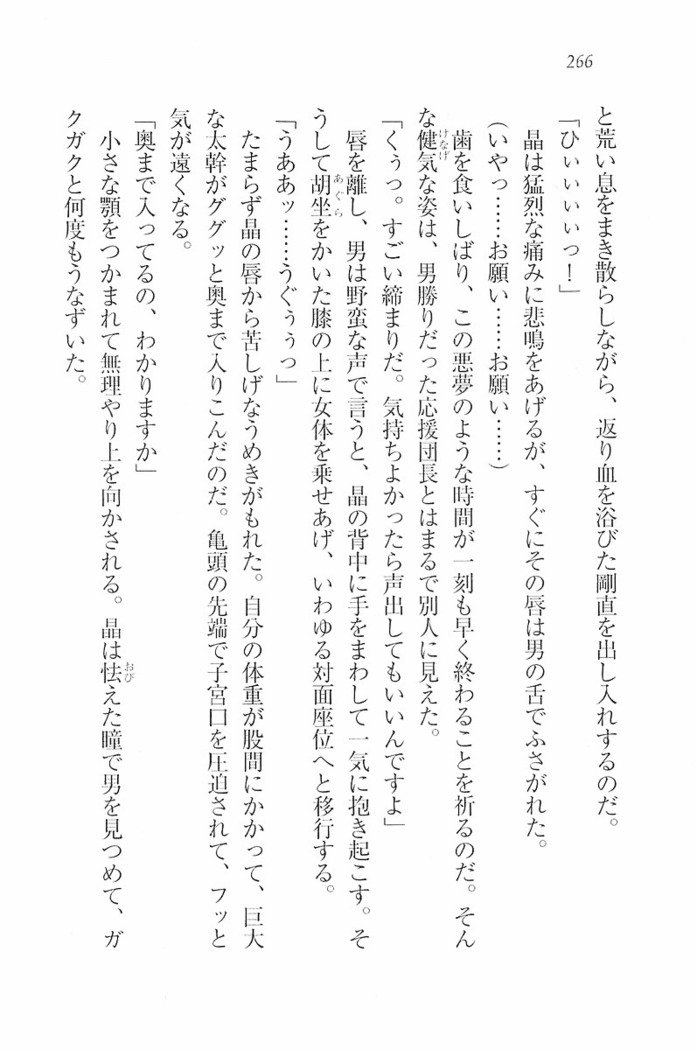 266
と荒い息をまき散らしながら、返り血を浴びた剛直を出し入れするのだ。
「ひぃぃぃぃっ！」
晶は猛烈な痛みに悲鳴をあげるが、すぐにその唇は男の舌でふさがれた。
（いやっ……お願い……お願い……）
歯を食いしばり、この悪夢のような時間が一刻も早く終わることを祈るのだ。そん
な健気な姿は、男勝りだった応援団長とはまるで別人に見えた。
「くぅっ。すごい締まりだ。気持ちよかったら声出してもいいんですよ」
唇を離し、男は野蛮な声で言うと、晶の背中に手をまわして一気に抱き起こす。そ
うして胡坐をかいた膝の上に女体を乗せあげ、いわゆる対面座位へと移行する。
「うああッ……うぐぅぅっ」
たまらず晶の唇から苦しげなうめきがもれた。自分の体重が股間にかかって、巨大
な太幹がググッと奥まで入りこんだのだ。亀頭の先端で子宮口を圧迫されて、フッと
気が遠くなる。
「奥まで入ってるの、わかりますか」
小さな顎をつかまれて無理やり上を向かされる。晶は怯えた瞳で男を見つめて、ガ
クガクと何度もうなずいた。